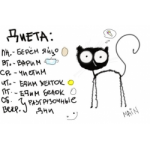 ДИЕТА:
ПН.- БЕРЁМ ЯЙЦО
ВТ.- ВАРИМ
СР.- ЧИСТИМ
ЧТ.- ЕДИМ ЖЕЛТОК
ПТ.- ЕДИМ БЕЛОК
СБ. } РАЗГРУЗОЧНЫЕ
ВСКР. ДНИ
MAIN